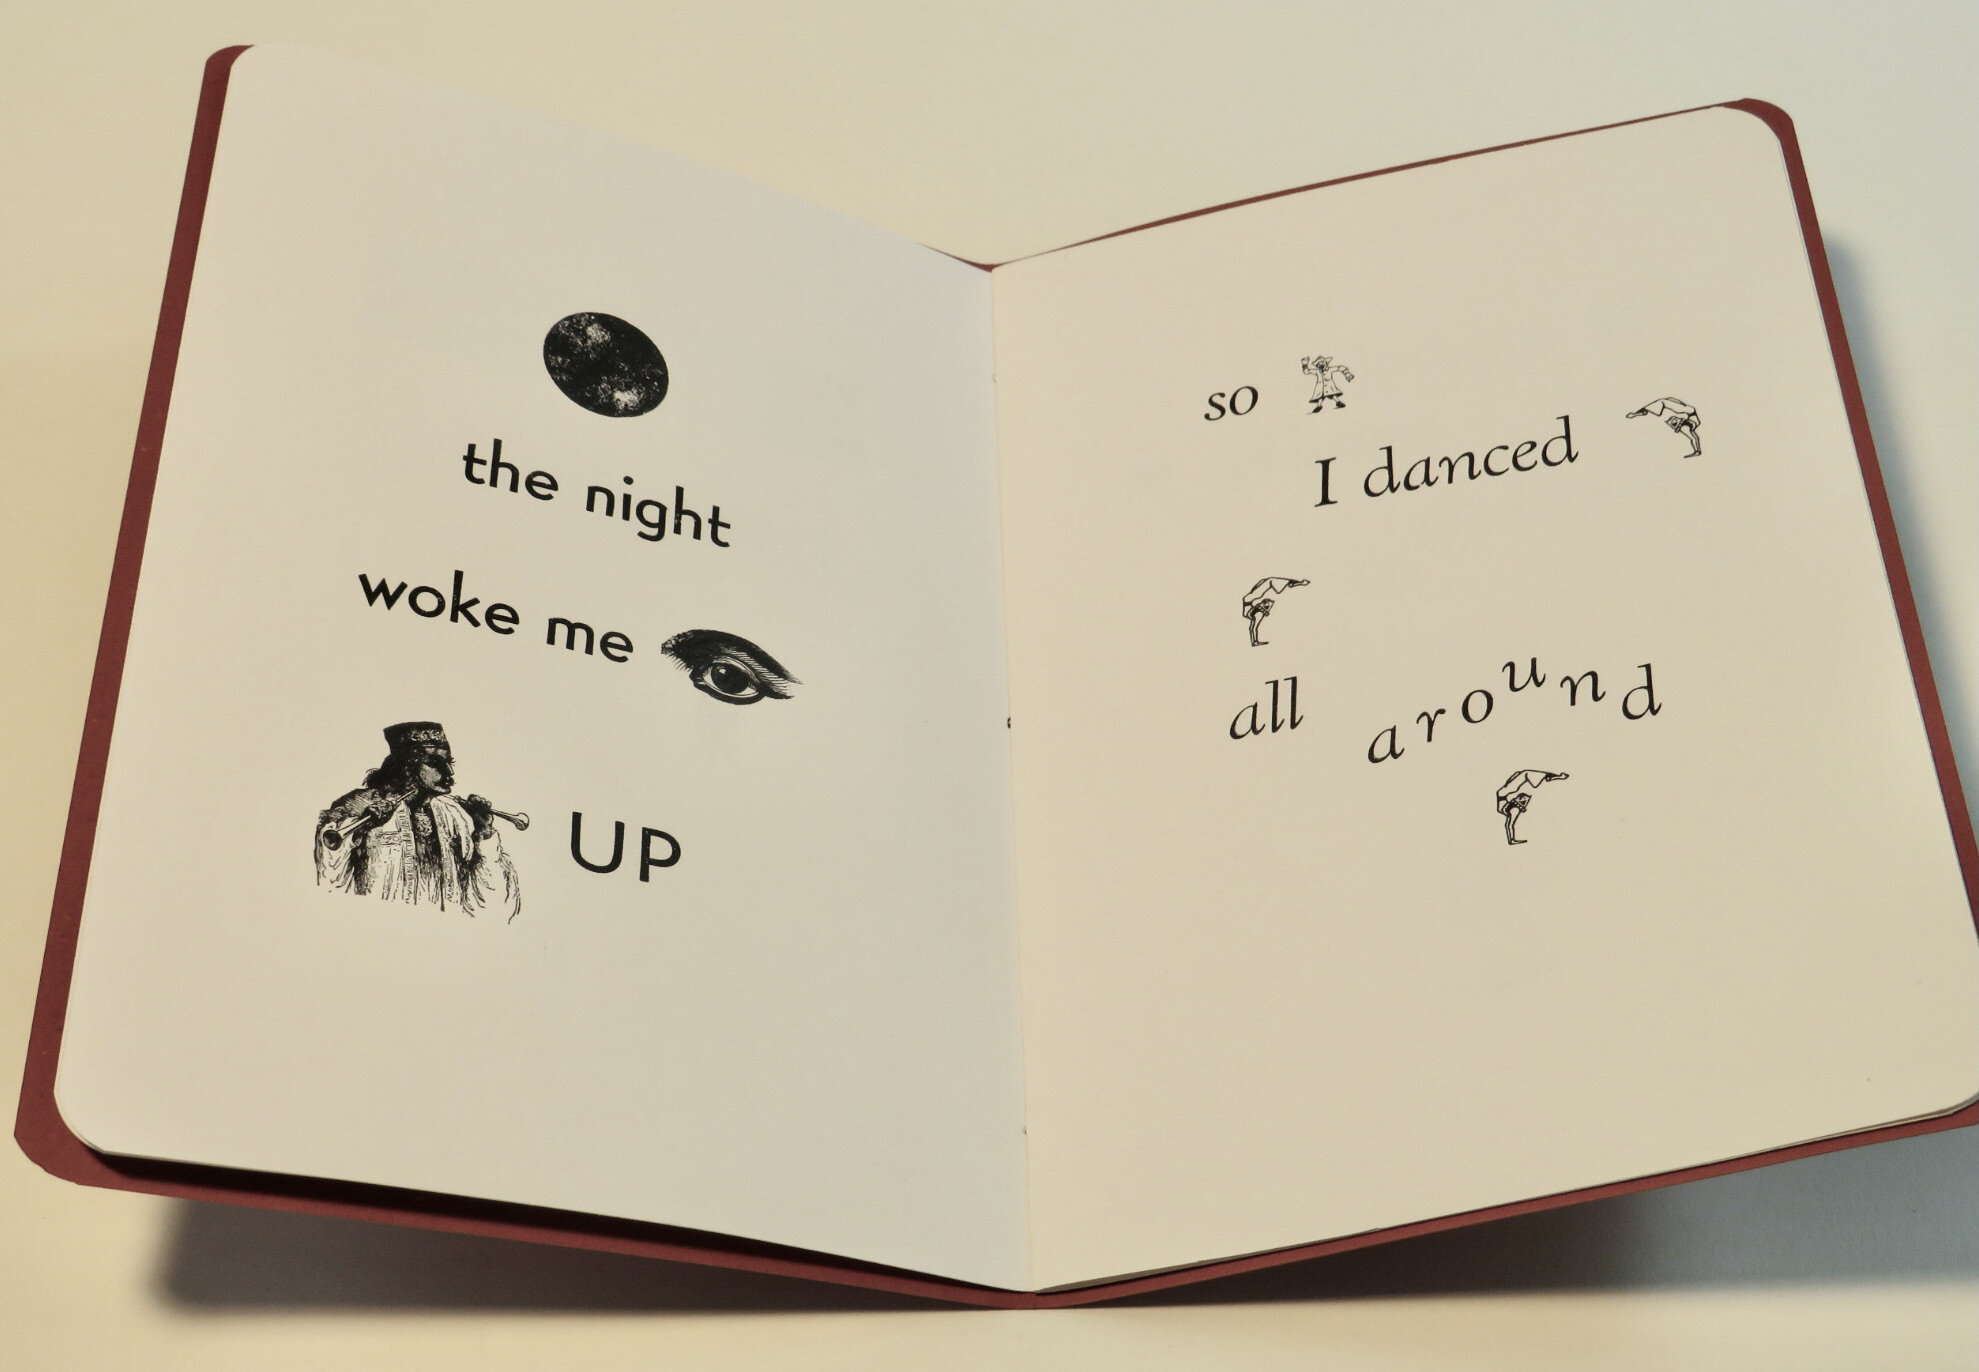 the night
woke me
UP
so
I danced
all around